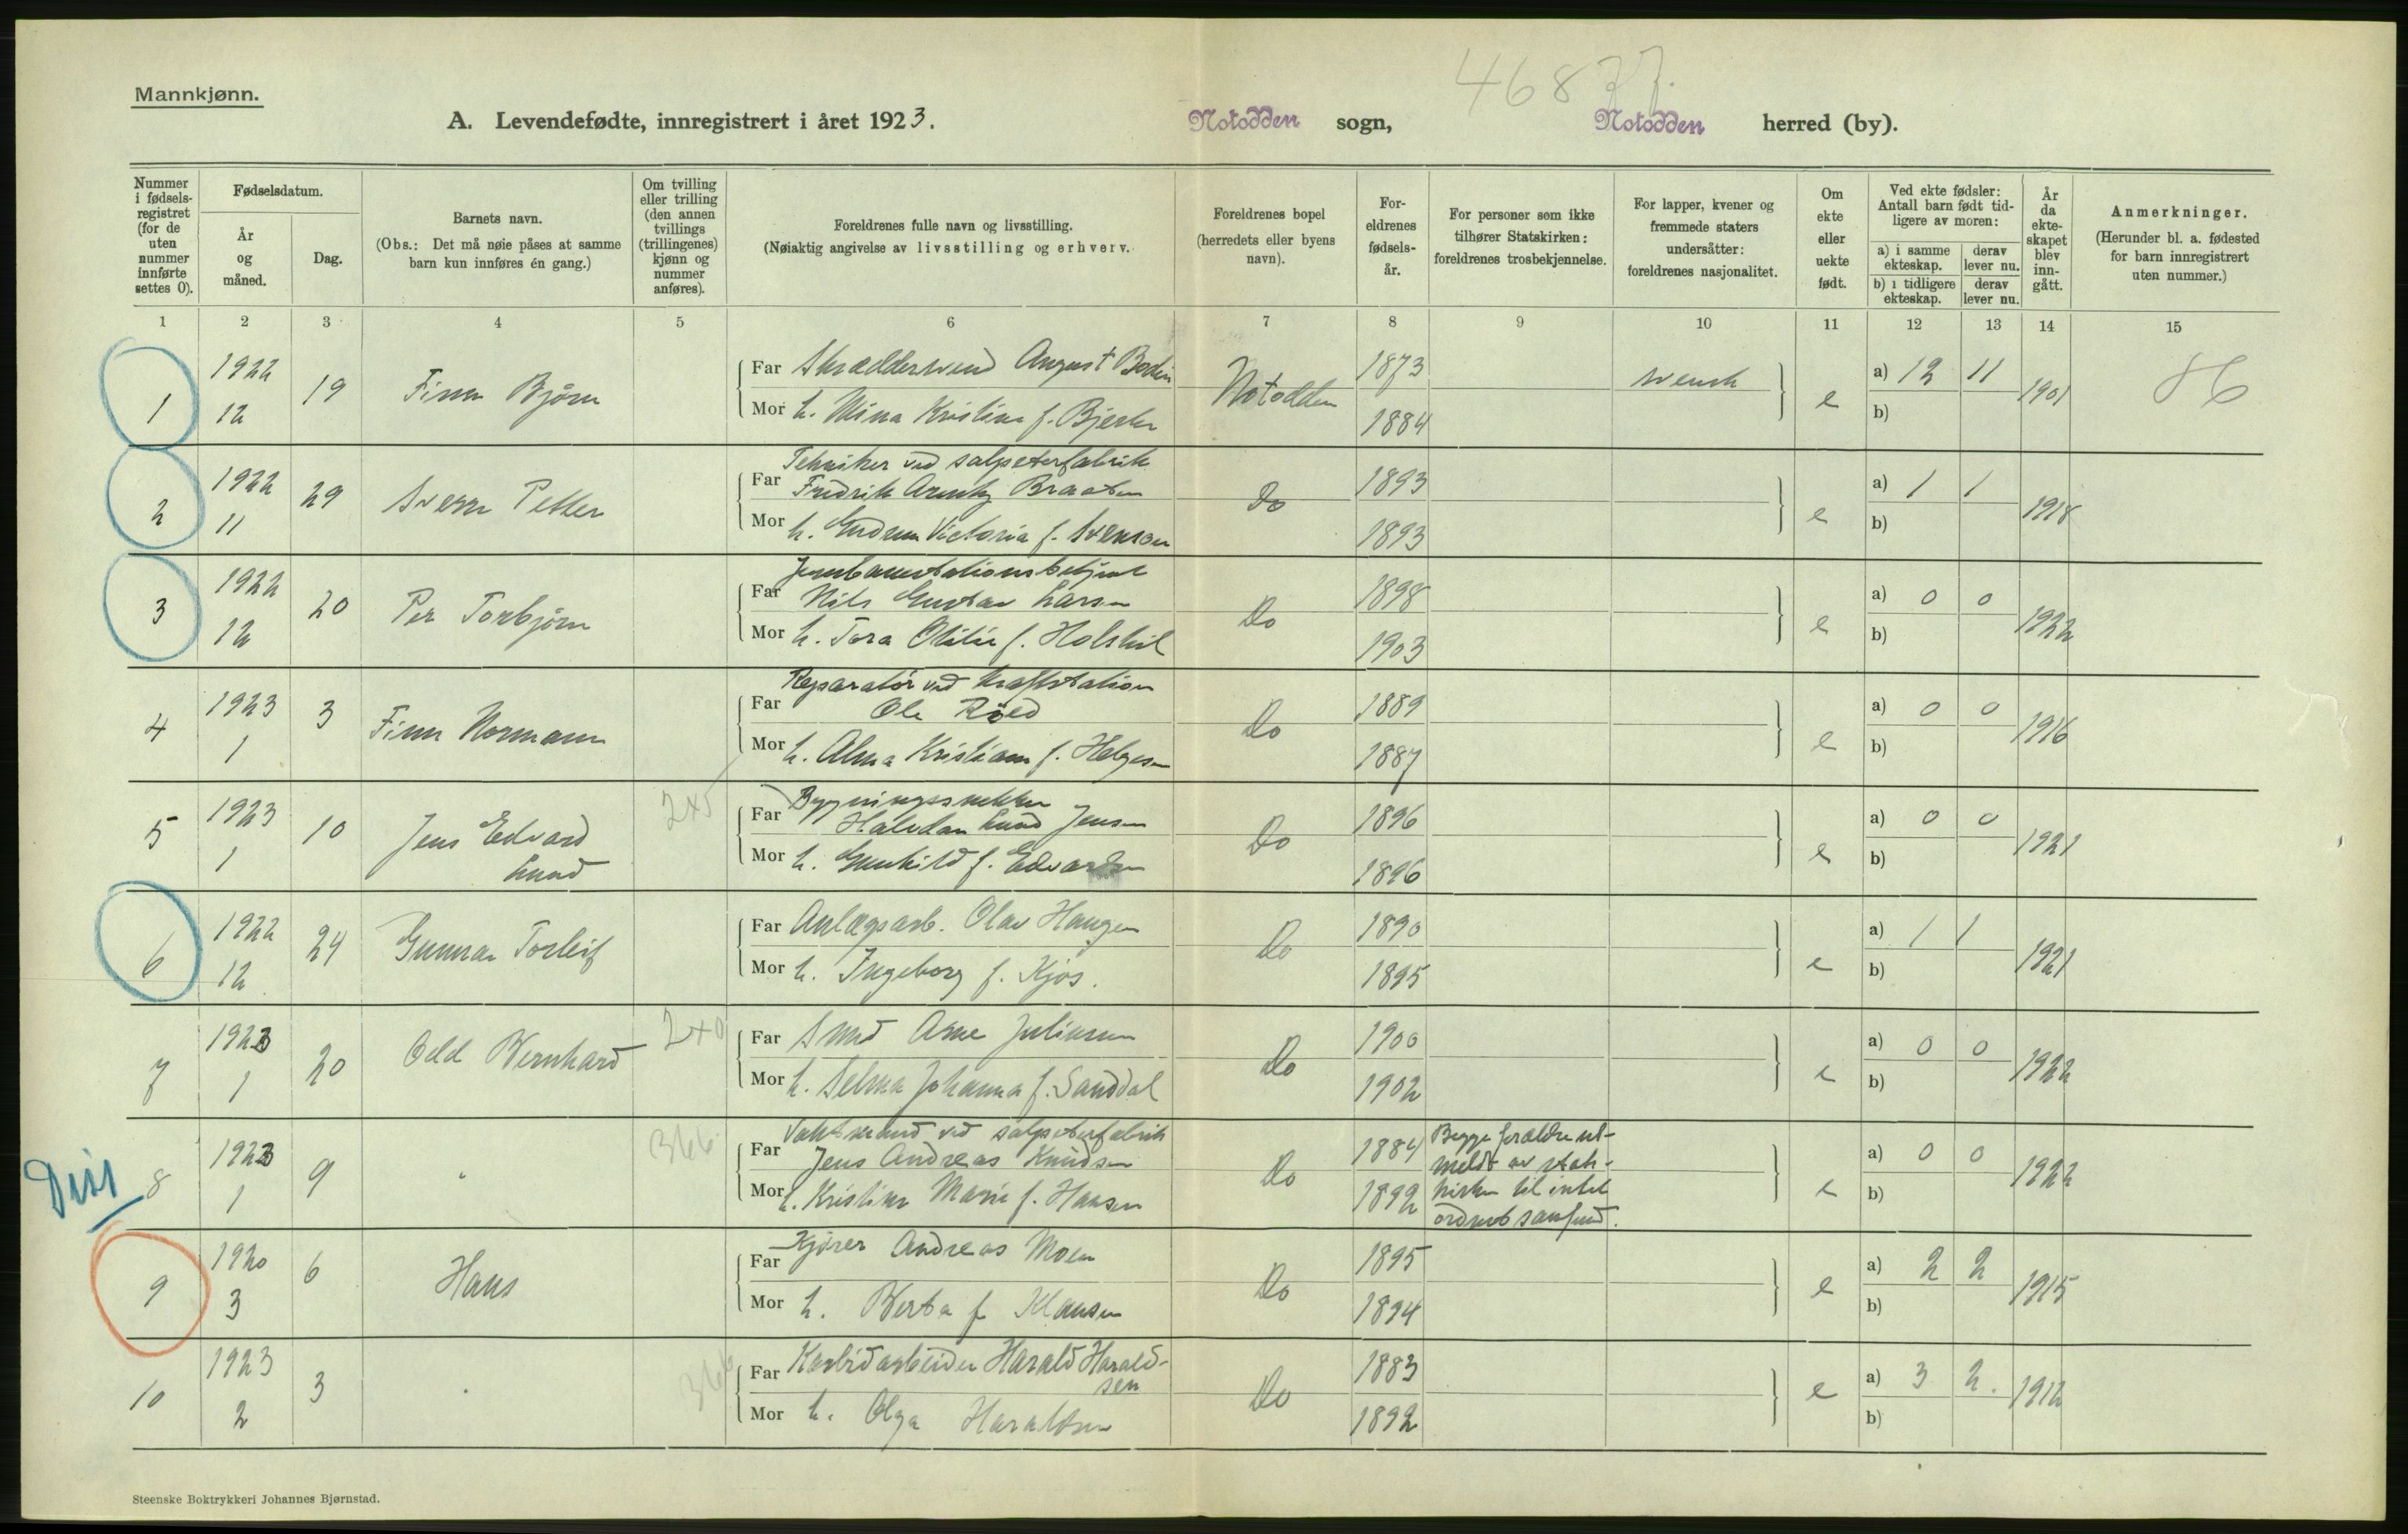 46837.
Mannkjønn.
A. Levendefødte, innregistrert i året 1923. Notodden sogn, Notodden herred (by).
Nummer i fødselsregistret (for de uten nummer innførte settes 0).
Fødselsdatum.
År og måned.
Dag.
Barnets navn.
(Obs.: Det må nøie påses at samme barn kun innføres én gang.)
Om tvilling eller trilling (den annen tvillings (trillingenes) kjønn og nummer anføres).
Foreldrenes fulle navn og livsstilling.
(Nøiaktig angivelse av livsstilling og erhverv.
Foreldrenes bopel (herredets eller byens navn).
For-eldrenes fødsels-år.
For personer som ikke tilhører Statskirken: foreldrenes trosbekjennelse.
For lapper, kvener og fremmede staters undersåtter: foreldrenes nasjonalitet.
Om ekte eller uekte født.
Ved ekte fødsler: Antall barn født tidligere av moren:
a) i samme ekteskap.
derav lever nu.
b) i tidligere ekteskap.
derav lever nu.
År da ekte-skapet blev inn-gått.
Anmerkninger.
(Herunder bl. a. fødested for barn innregistrert uten nummer.)
1 2 3 4 5 6 7 8 9 10 11 12 13 14 15
1 1922 12 19 Finn Bjørn
Far Skræddersvend August Bodin Notodden 1873 svensk e a) 12 11 1901
Mor h. Mina Kristine f. Bjerke 1884 b)
2 1922 11 29 Svenn Petter
Tekniker ved salpeterfabrik
Far Fredrik Braaten Do 1893 e a) 1 1 1918
Mor h. Gudrun Victoria f. Svenson 1893 b)
3 1922 12 20 Per Torbjørn
Jernbanestationsbetjent
Far Nils Gustav Larsen Do 1898 e a) 0 0 1922
Mor h. Tora Otilie f. 1903 b)
4 1923 1 3 Finn Normann
Reparatør ved kraftstation
Far Ole Røed Do 1889 e a) 0 0 1916
Mor h. Alma Kristiane f. Helgesen 1887 b)
5 1923 1 10 Jens Edvard Lund 245
Bygningssnekker
Far Halvdan Lund Jensen Do 1896 e a) 0 0 1921
Mor h. Gunhild f. Edvardsen 1896 b)
6 1922 12 24 Gunnar Torleif
Far Anlægsarb. Olav Haugen Do 1890 e a) 1 1 1921
Mor h. Ingeborg f. Kjos. 1895 b)
7 1923 1 20 Odd Bernhard 240
Far Smed Arne Juliussen Do 1900 e a) 0 0 1922
Mor h. Selma Johanna f. Sanddal 1902 b)
8 1923 1 9 366
Vaktmand ved salpeterfabrik
Far Jens Andreas Knudsen Do 1884 Begge forældre ut- e a) 0 0 1922
meldt av stats-
Mor h. Kristine Marie f. Hansen 1892 kirken til intet b)
ordnet samfund.
9 1920 3 6 Hans
Far Kjører Andreas Moen Do 1895 e a) 2 2 1915
Mor h. Berta f Klausen 1894 b)
10 1923 2 3
Far Karbidarbeider Harald Harald-sen Do 1883 e a) 3 2. 1912
Mor h. Olga Haraldsen 1892 b)
Steenske Boktrykkeri Johannes Bjørnstad.